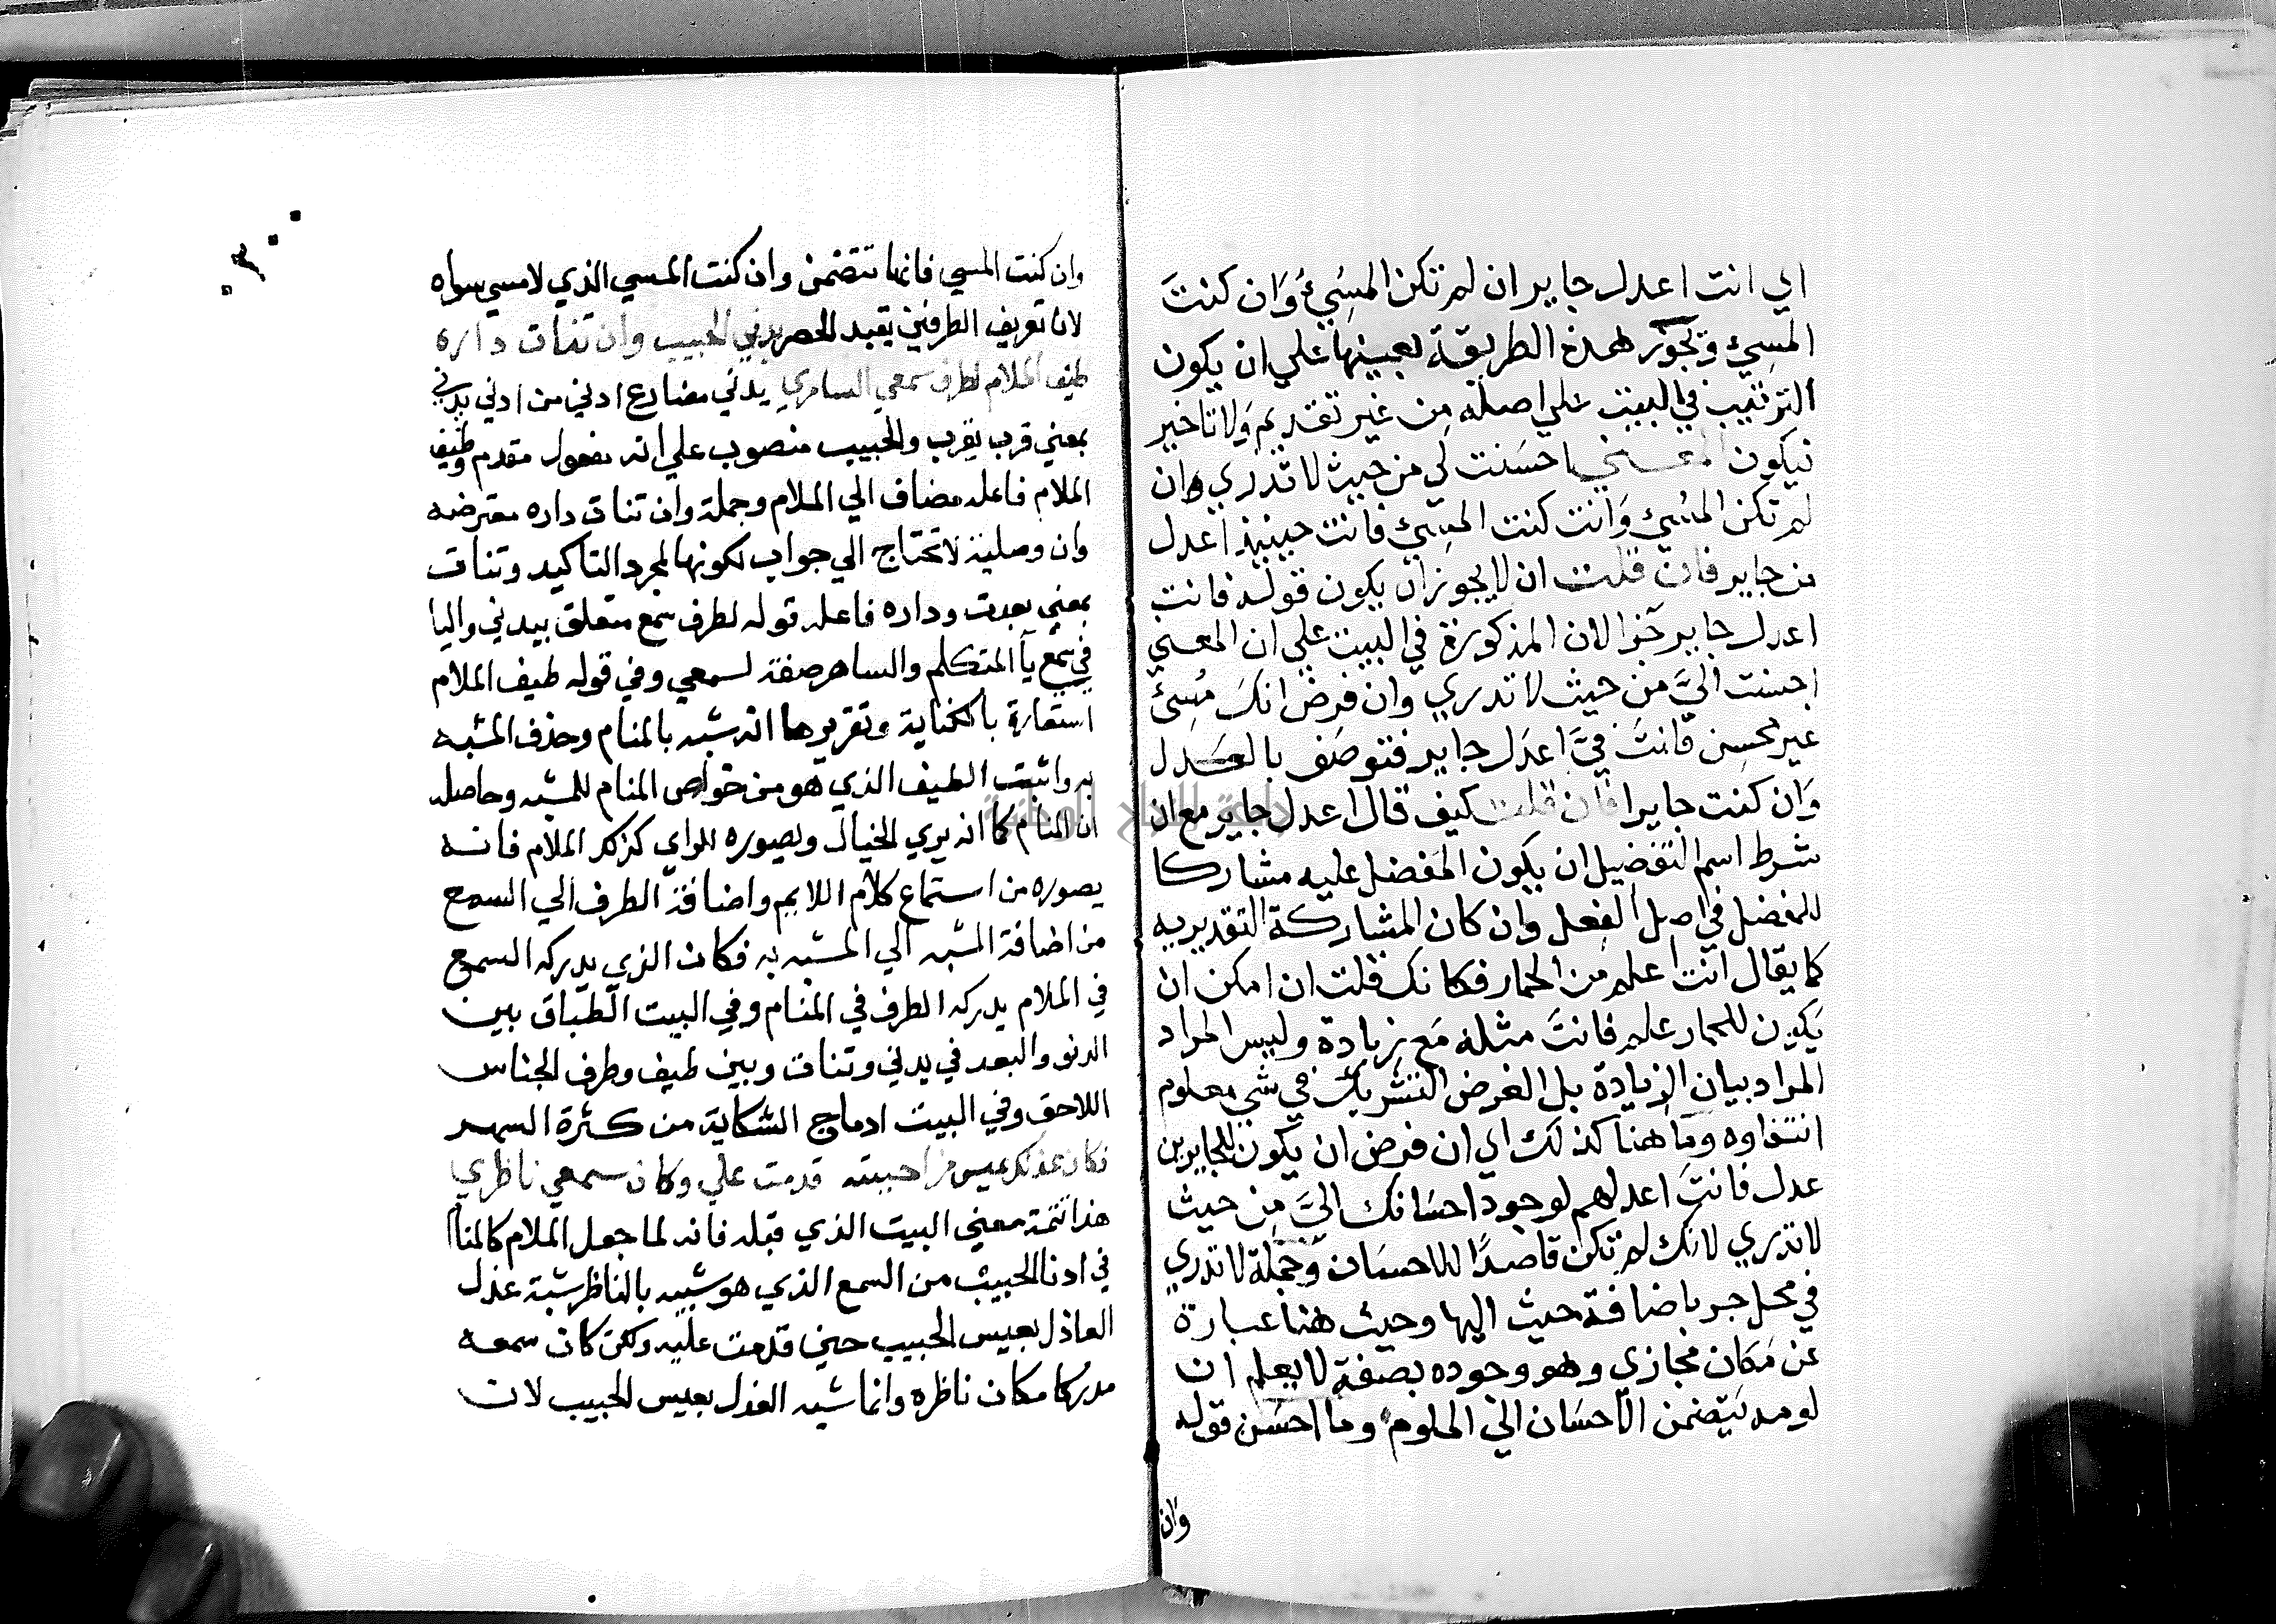 الي انت اعدل جاير ان لم تكن المسِيءُ وَان كنتَ
المسِيء وتجوز هذه الطريقة بعينها علي ان يكون
الترتيب في البيت علي اصله مِن غير تقديم وَلا تاخير
فيكون المعني احسَنت لي من حيث لا تدري وان
لم تكن المسُيء وَانت كنت المسِيء فانت حينيذ اعدل
من جاير فان قلت ان لا يجوز ان يكون قوله فانت
اعدل جاير جزا لان المذكورة في البيت علي ان المعني
احسنت اليَّ من حيث لا تدري وان فرض انكَ مُسِئ
غير محسِن فانتَ فيَّ اعدَل جاير فتوصَف بالعَدل
وَان كنت جايرا فان قلت كيف قال اعدل جاير مع ان
شرط اسم التفضيل ان يكون المفضل عليه مشاركا
للمفضل في اصل الفِعل وان كان المشاركة التقديريه
كما يقال انت اعلم من الحمار فكانك قلت ان امكن ان
يَكون للحمار علم فانتَ مثله مَع زيادة وليس المراد
المراد بيان الزيادة بل الغرض التشريك في شي معلوم
انتفاوه ومَا هنا كذلك اي ان فرض ان يكون للجايرين
عدل فانتَ اعدلهم لوجود احسَانك اليَّ مِن حيث
لا تدري لانك لم تكن قاصدًا للاحسَان وَجملة لا تدري
في محل جر باضافة حيث اليها وحيث هنا عبارة
عن مَكان مجازي وهو وجوده بصفةٍ لا يعلم ان
لومه يَتضمن الاحسَان الي الملوم وما احسَن قوله
وَان
٣٠٠
وان كنت المسي فانها تتضمن وان كنت المسي الذي لا مسي سواه
لان تعريف الطرفين يفيد الحصر يدني الحبيب وان تنات داره
طيف الملام لطرف سمعي الساهري يدني مضارع ادني من ادني يدني
بمعني قرب يقرب والحبيب منصوب علي انه مفعول مقدم وطيف
الملام فاعله مضاف الي الملام وجملة وان تنات داره معترضه
وان وصلية لا تحتاج الي جواب لكونها لمجرد التاكيد وتنات
بمعني بعدت وداره فاعله قوله لطرف سمع متعلق بيدني واليا
في سمع يآ المتكلم والساهر صفة لسمعي وفي قوله طيف الملام
استعارة بالكناية وتقريرها انه شبه بالمنام وحذف المشبه
به واثبت الطيف الذي هو من خواص المنام للمشبه وحاصله
ان المنام كما انه يري الخيال ويصوره للراي كذلك الملام فانه
يصوره من استماع كلام اللايم واضافة الطرف الي السمع
من اضافة المشبه الي المشبه به فكان الذي يدركه السمع
في الملام يدركه الطرف في المنام وفي البيت الطباق بين
الدنو والبعد في يدني وتنات وبين طيف وطرف الجناس
اللاحق وفي البيت ادماج الشكاية من كثرة السهر
فكان عذلك عيس من احببته قدمت علي وكان سمعي ناظري
هذا تتمة معني البيت الذي قبله فانه لما جعل الملام كالمنا
في ادنا الحبيب من السمع الذي هو شبيه بالناظر شبة عذل
العاذل بعيس الحبيب حين قدمت عليه ولكن كان سمعه
مدركا مكان ناظره وانما شبه العذل بعيس الحبيب لان